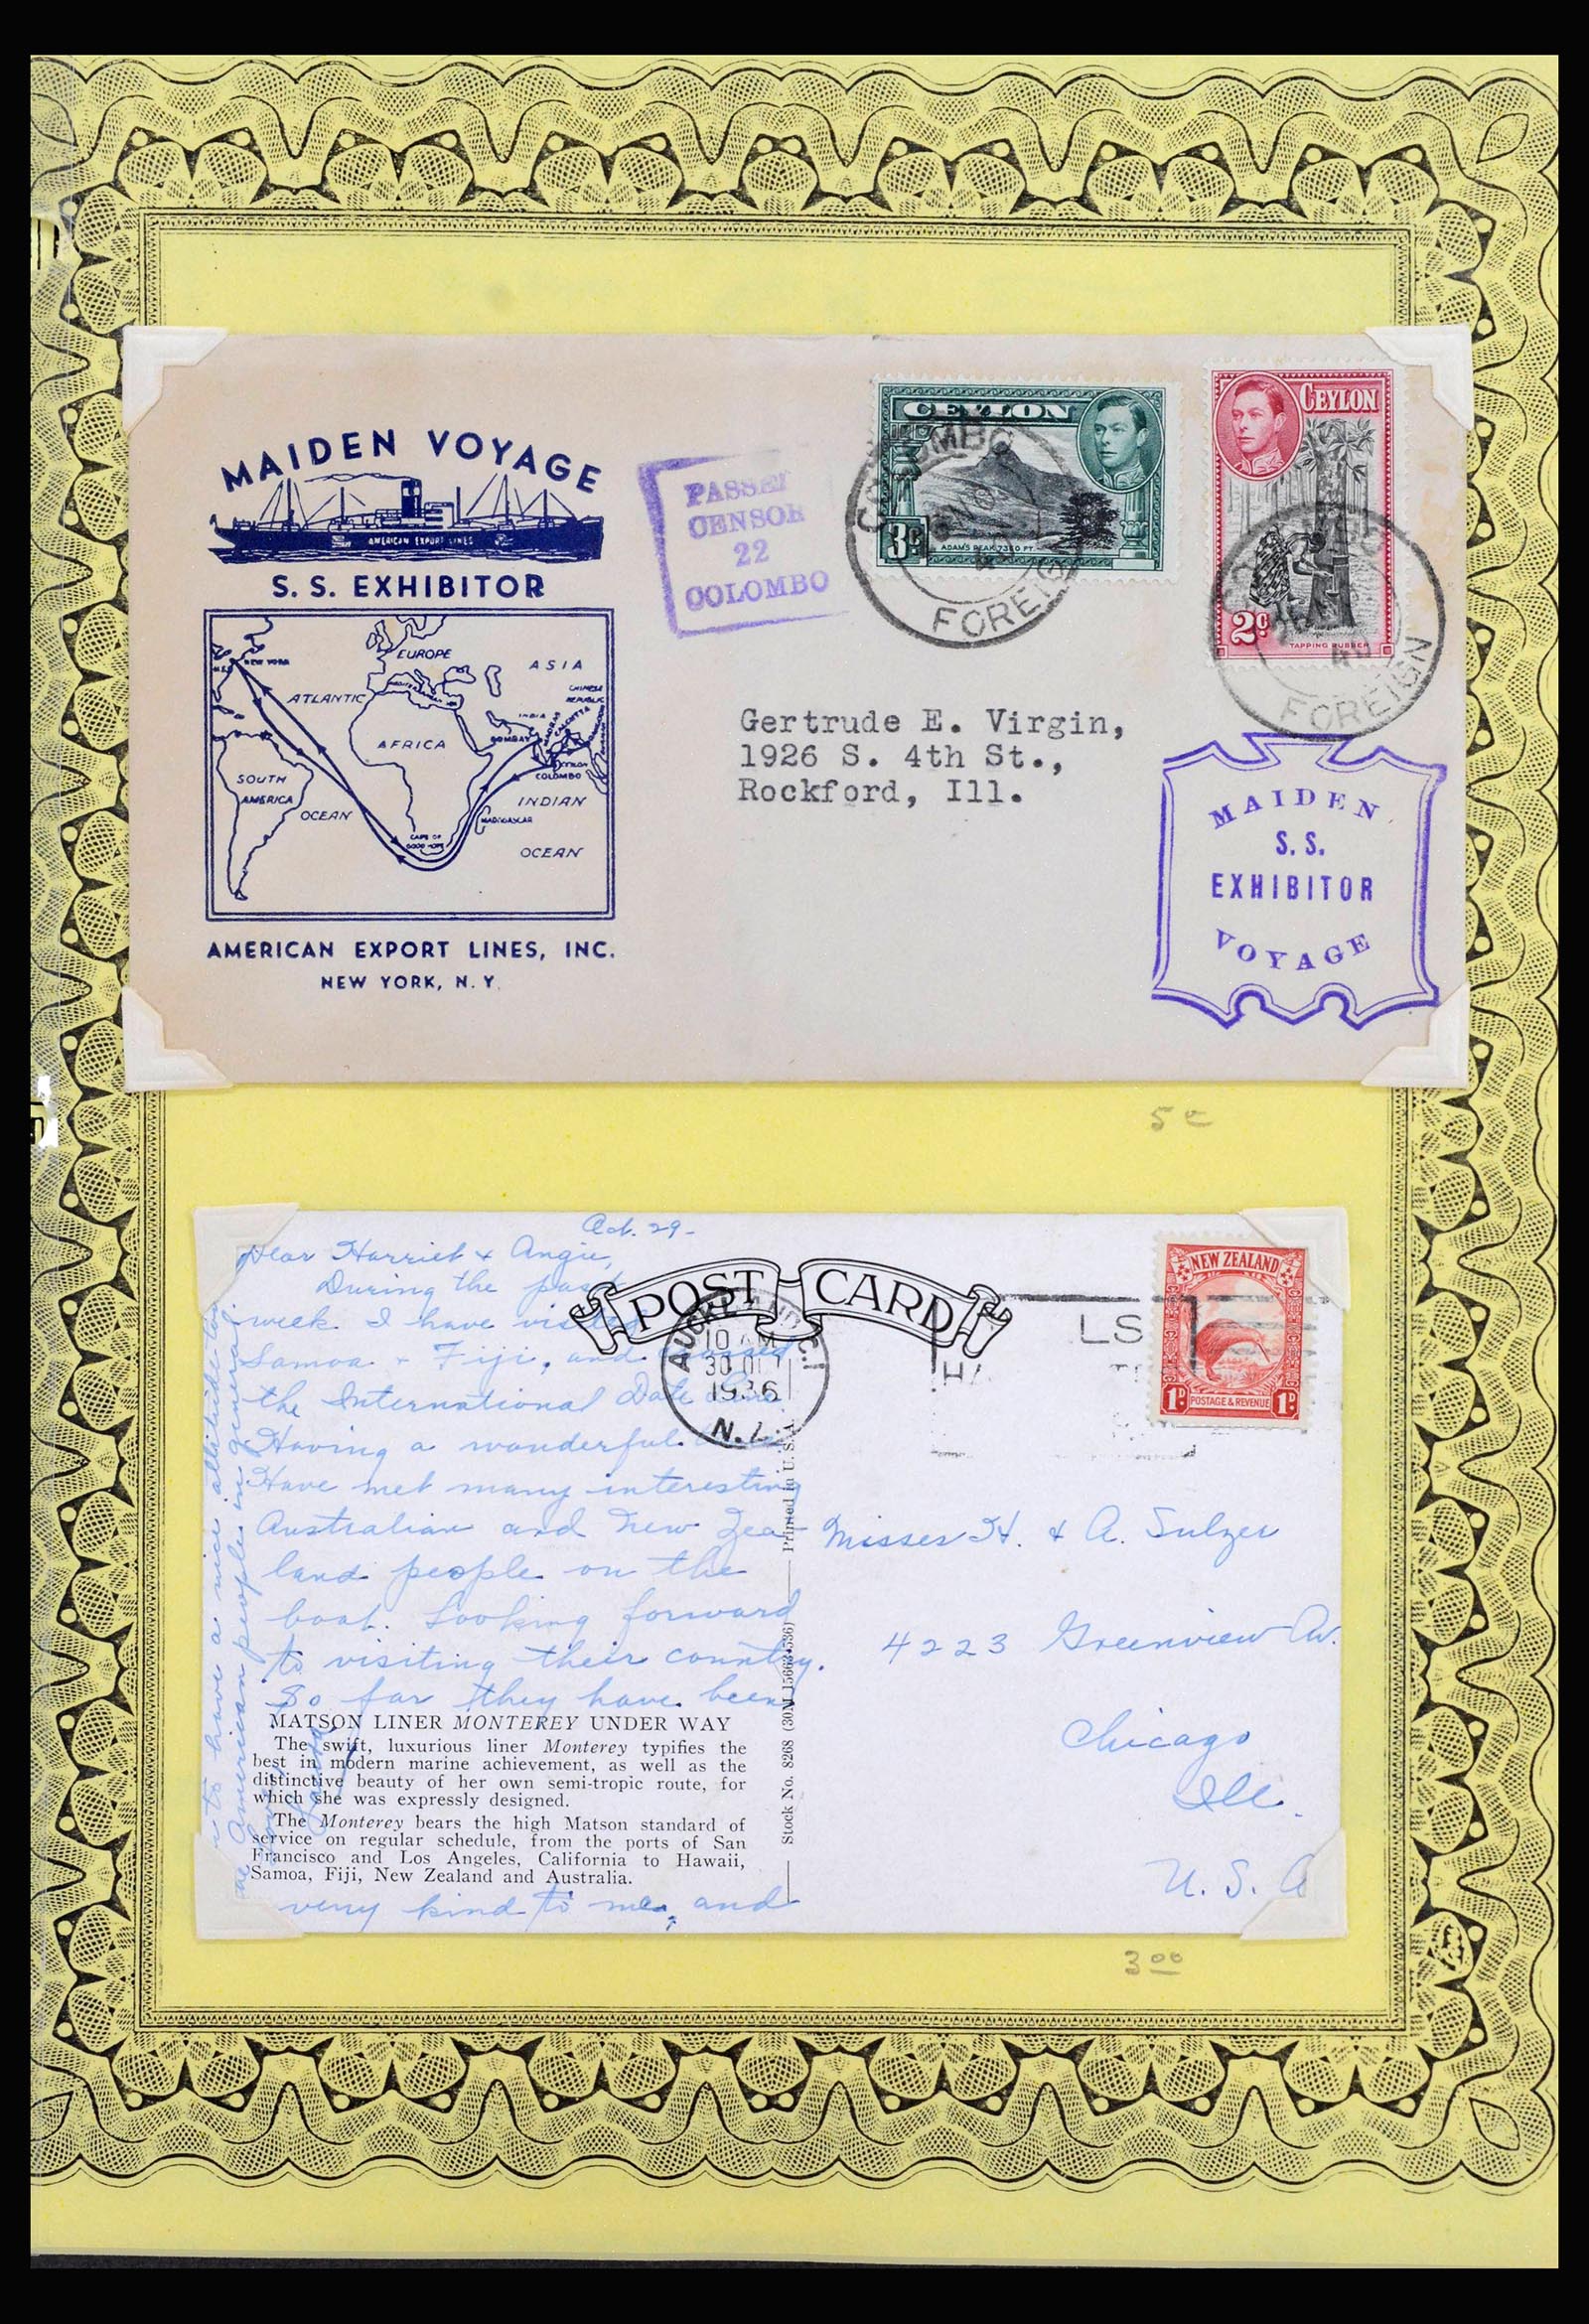 MAIDEN VOYAGE
AMERICAN EXPORT LINES
S. S. EXHIBITOR
NEW YORK
EUROPE
ASIA
ATLANTIC
MEDITERRANEAN
CHINESE
REPUBLIC
INDIA
BOMBAY
MADRAS
CALCUTTA
AFRICA
CEYLON
COLOMBO
SOUTH
AMERICA
OCEAN
INDIAN
MADAGASCAR
CAPE OF
GOOD HOPE
OCEAN
AMERICAN EXPORT LINES, INC.
NEW YORK, N. Y.
PASSED
CENSOR
22
COLOMBO
CEYLON
3c
ADAM'S PEAK 7360 FT.
COLOMBO
FOREIGN
CEYLON
2c
TAPPING RUBBER
FOREIGN
Gertrude E. Virgin,
1926 S. 4th St.,
Rockford, Ill.
MAIDEN
S. S.
EXHIBITOR
VOYAGE
5c
Oct. 29-
Dear Harriet & Angie,
During the past
week I have visited
Samoa & Fiji, and crossed
the International Date Line
Having a wonderful
Have met many interesting
Australian and New Zea-
land people on the
boat. Looking forward
to visiting their country.
So far they have been
very kind to me, and
to have a nice attitude to
the American people in general.
Love
POST CARD
AUCKLAND C.1
10 AM
30 OCT
1936
N.Z.
LS
HA
NEW ZEALAND
1D POSTAGE & REVENUE 1D
Misses H. & A. Sulzer
4223 Greenview Av.
Chicago
Ill.
U. S. A
MATSON LINER MONTEREY UNDER WAY
The swift, luxurious liner Monterey typifies the
best in modern marine achievement, as well as the
distinctive beauty of her own semi-tropic route, for
which she was expressly designed.
The Monterey bears the high Matson standard of
service on regular schedule, from the ports of San
Francisco and Los Angeles, California to Hawaii,
Samoa, Fiji, New Zealand and Australia.
Stock No. 8268 (30M 15663-536) Printed in U. S. A.
3 00